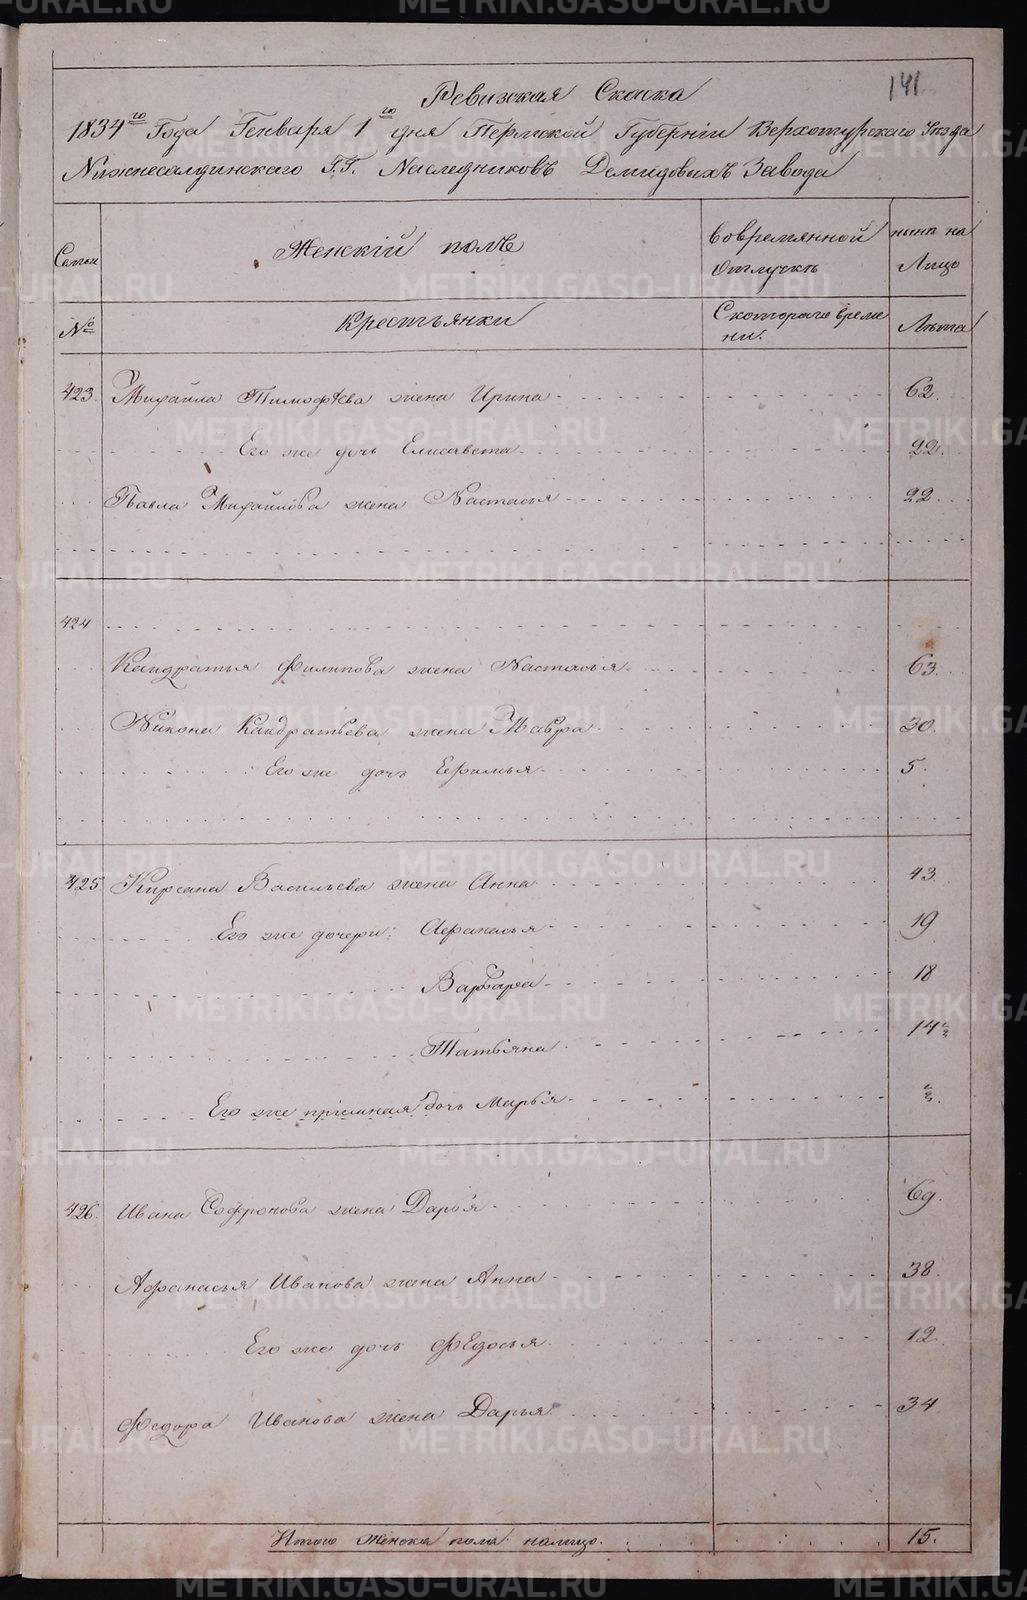 141
Ревизская Сказка
1834го Года Генваря 1го дня Пермской Губернiи Верхотурскаго Уезда
Нижнесалдинскаго Г.Г. Наследниковъ Демидовыхъ Завода
Семьи
Женскiй полъ
Вовремянной отлучкъ
нынъ на Лицо
№
Крестьянки
Скотораго време ни.
Лъта
423. Михайла Тимофъева жена Ирина 62.
Его же дочь Елисавета 22.
Павла Михайлова жена Настасья 22
424
Кандратья Филипова жена Настасья 63.
Никона Кандратьева жена Мавра 30.
Его же дочь Ефимья 5.
425 Кирсана Васильева жена Анна 43
Его же дочери: Афанасья 19
Варвара 18
Татьяна 14 1/2
Его же прiемная дочь Марья 1/2.
426. Ивана Софронова жена Дарья 69.
Афанасья Иванова жена Анна 38.
Его же дочь Федосья 12.
Федора Иванова жена Дарья 34
Итого женска пола налицо 15.
METRIKI.GASO-URAL.RU